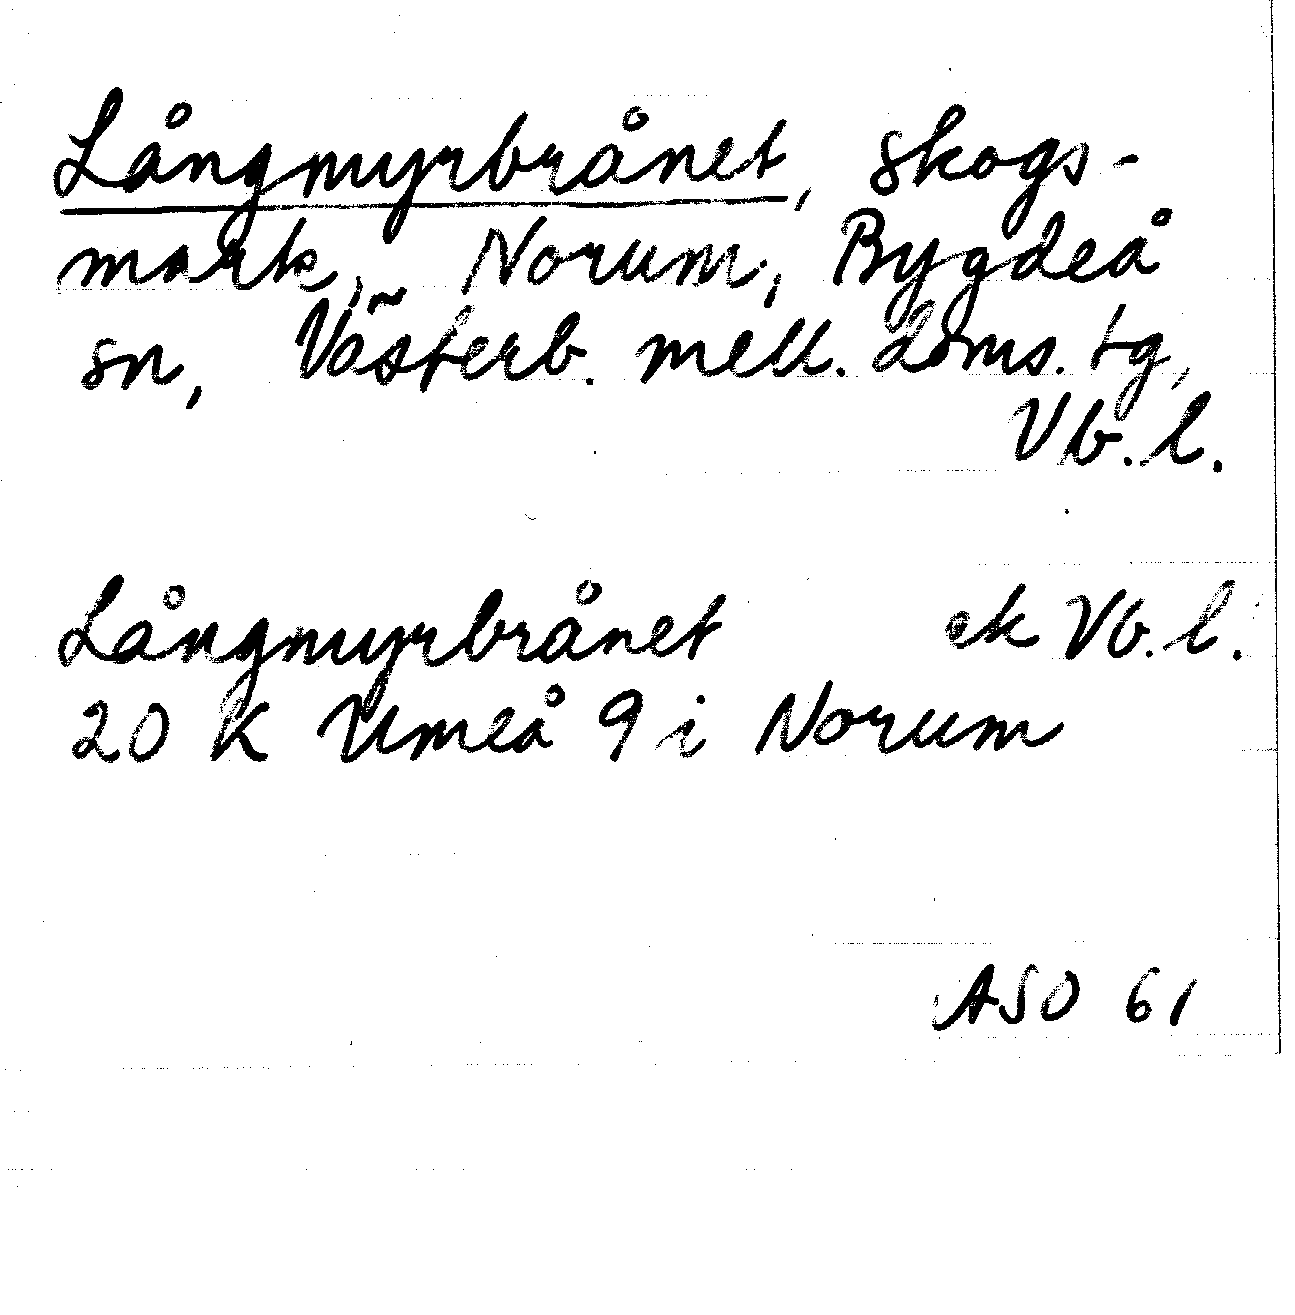 Långmyrbrånet, skogs-
mark, Norum, Bygdeå
sn, Västerb. mell. doms. tg,
Vb. l.
Långmyrbrånet ek Vb. l.
20 K Umeå 9 i Norum
ASO 61